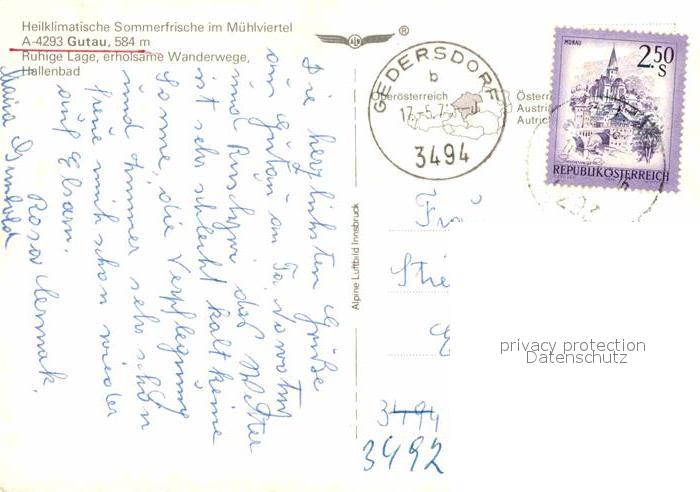 Heilklimatische Sommerfrische im Mühlviertel
A-4293 Gutau, 584 m
Ruhige Lage, erholsame Wanderwege,
Hallenbad
®
Die herzlichsten Grüße
aus Gutau an
und das Wetter
ist sehr schlecht kalt keine
Sonne, die Verpflegung
und Zimmer sehr schön
freue mich schon wieder
auf Elsarn.
Rosa Cermak.
Maria
Alpine Luftbild Innsbruck
Oberösterreich
GEDERSDORF
b
3494
Austria
MURAU
2.50
S
REPUBLIK ÖSTERREICH
3494
3492
privacy protection
Datenschutz